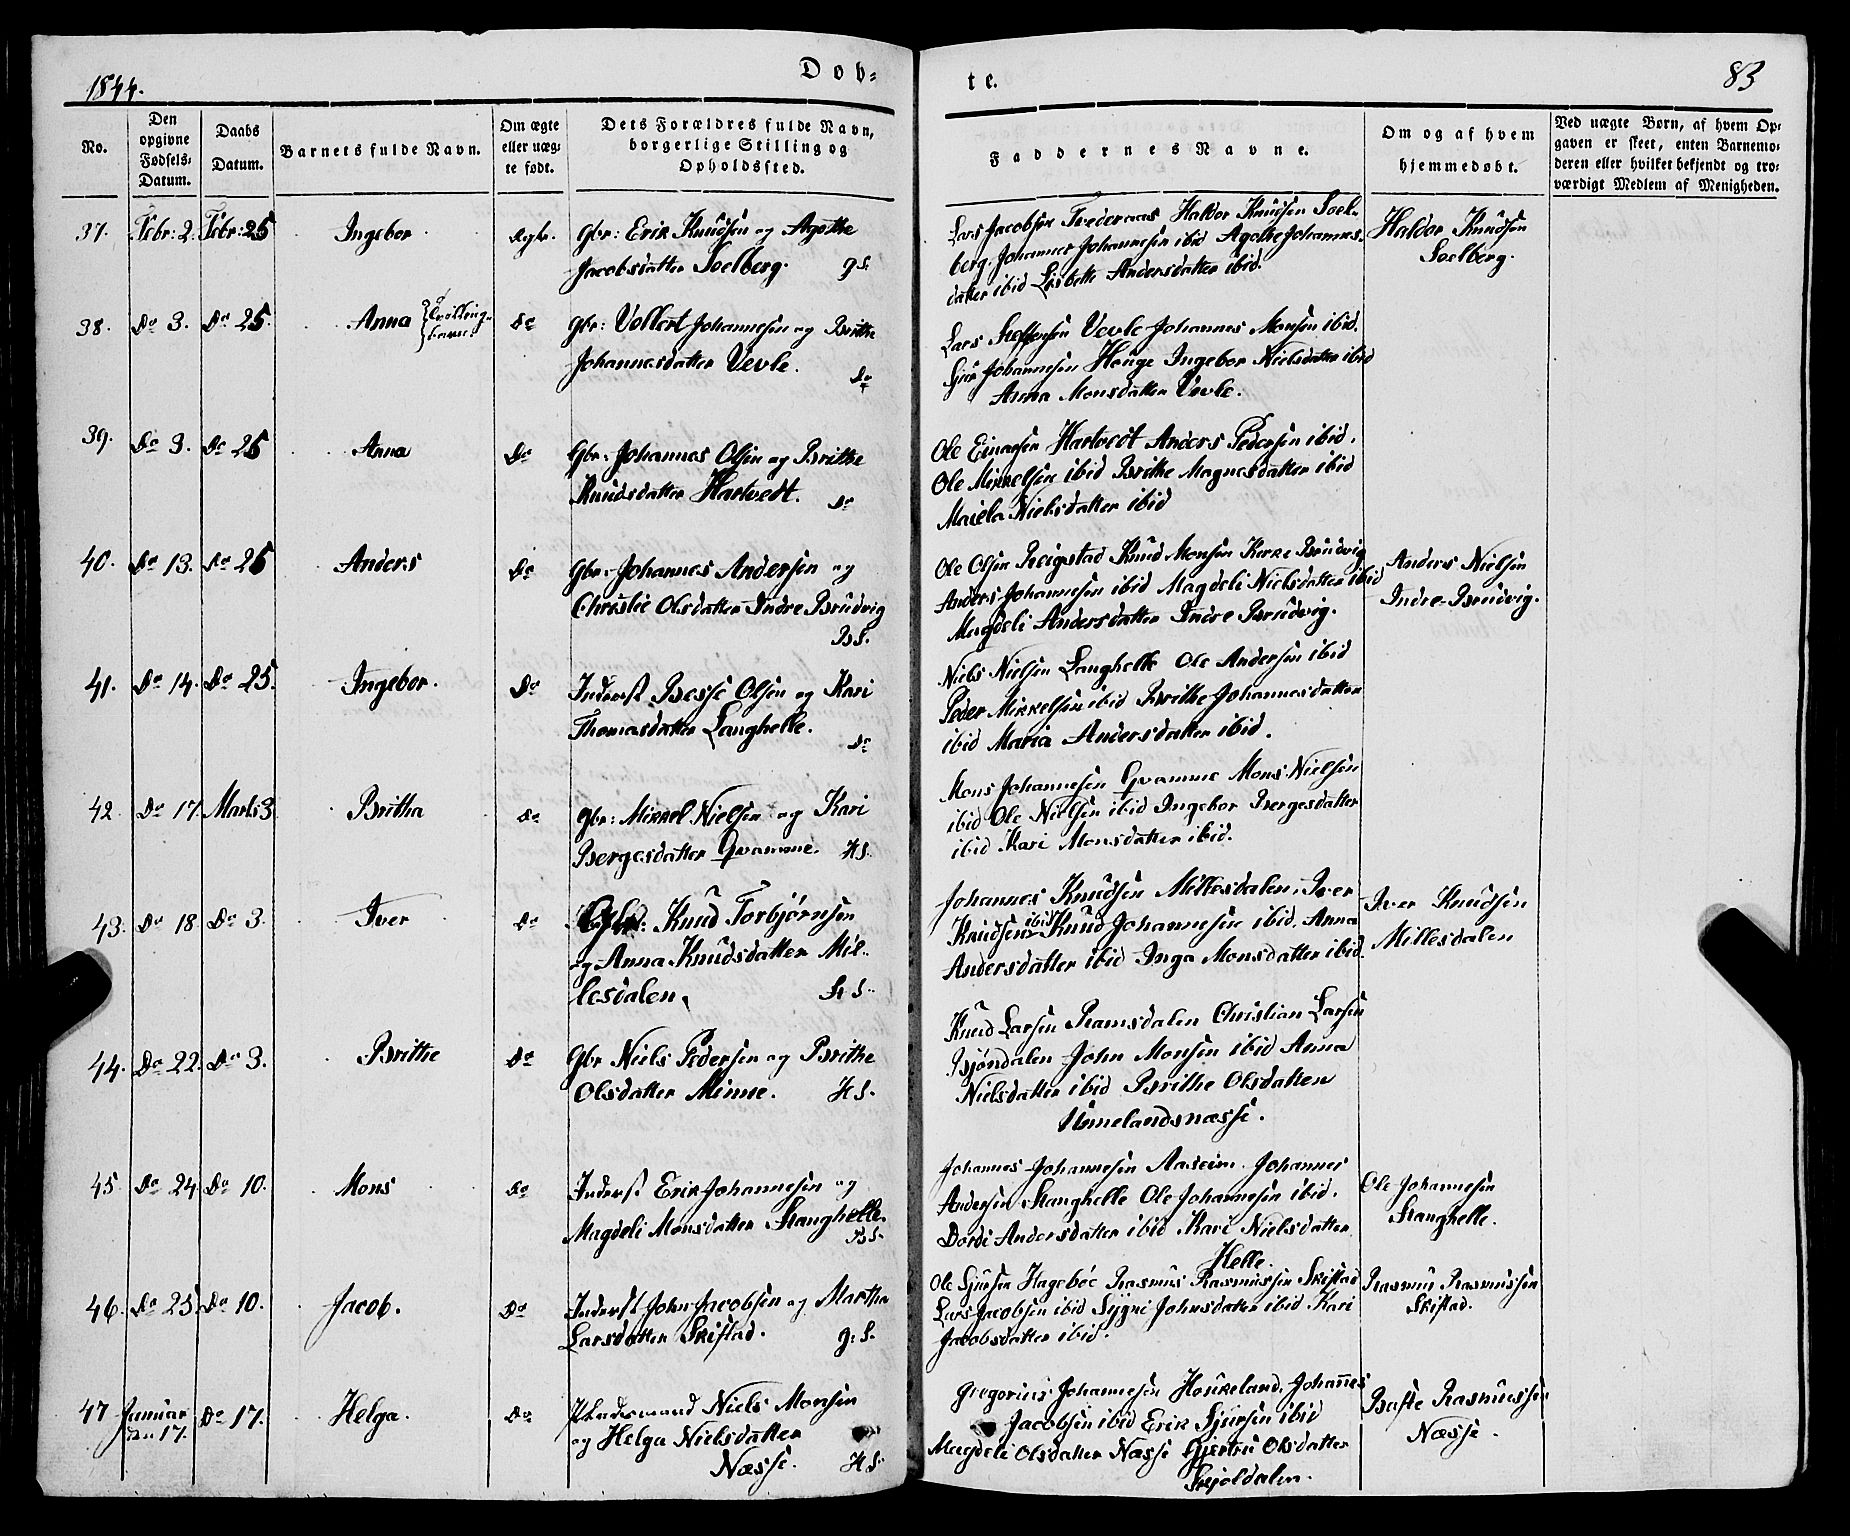 1844.
Døb-
te.
83
No.
Den
opgivne
Fødsels-
Datum.
Daabs
Datum.
Barnets fulde Navn.
Om ægte
eller uæg-
te født.
Dets Forældres fulde Navn,
borgerlige Stilling og
Opholdssted.
Faddernes Navne.
Om og af hvem
hjemmedøbt.
Ved uægte Børn, af hvem Op-
gaven er skeet, enten Barnemo-
deren eller hvilket bekjendt og tro-
værdigt Medlem af Menigheden.
37. Febr: 2. Febr: 25 Ingebor Ægte. Gbr: Erik Knudsen og Agathe
Jacobsdatter Soelberg. g S.
Lars Jacobsen Haldor Knudsen Soel-
berg. Johannes Johannesen ibid Agathe Johannes-
datter ibid Lisbethe Andersdatter ibid.
Haldor Knudsen
Soelberg.
38. Do 3. Do 25. Anna Tvilling- Do Gbr: Vollert Johannesen og Brithe
Johannesdatter Vevle. Do
Lars Steffensen Vevle Johannes Monsen ibid.
Sjur Johannesen Houge Ingebor Nielsdatter ibid
Anna Monsdatter Vevle.
39. Do 3. Do 25 Anna Do Gbr: Johannes Olsen og Brithe
Knudsdatter Hartvedt. Do
Ole Einarsen Hartvedt Anders Pedersen ibid.
Ole Mikkelsen ibid Brithe Magnesdatter ibid
Nielsdatter ibid
40. Do 13. Do 25 Anders Do Gbr. Johannes Andersen og
Christie Olsdatter Indre Brudvig
Bs S.
Ole Olsen Reigstad Knud Monsen Kirke Brudvig
Anders Johannesen ibid Magdeli Nielsdatter ibid
Magdeli Andersdatter Indre Brudvig.
Anders Nielsen
Indre-Brudvig.
41. Do 14. Do 25. Ingebor. Do Inderst Besse Olsen og Kari
Thomasdatter Langhelle. Do
Niels Nielsen Langhelle Ole Andersen ibid
Peder Mikkelsen ibid Brithe Johannesdatter
ibid Maria Andersdatter ibid.
42 Do 17. Marts 3 Britha Do Gbr: Mikkel Nielsen og Kari
Bergesdatter Qvamme. H S.
Mons Johannesen Qvamme Mons Nielsen
ibid Ole Nielsen ibid Ingebor Bergesdatter
ibid Kari Monsdatter ibid.
43. Do 18 Do 3. Iver Do Gbr: Knud Torbjørnsen
og Anna Knudsdatter Mil-
lesdalen. St S.
Johannes Knudsen Millesdalen. Iver
Knudsen ibid Knud Johannesen ibid. Anna
Andersdatter ibid Inga Monsdatter ibid.
Iver Knudsen
Millesdalen
44. Do 22. Do 3. Brithe Do Gbr Niels Pedersen og Brithe
Olsdatter Minne. H S.
Knud Larsen Ramsdalen Christian Larsen
Bjøndalen John Monsen ibid Anna
Nielsdatter ibid Brithe Olsdatter
Unnelandsnæsse.
45 Do 24 Do 10. Mons Do Inderst Erik Johannesen og
Magdeli Monsdatter Stanghelle.
Bs S.
Johannes Johannesen Aaseim. Johannes
Andersen Stanghelle Ole Johannesen ibid.
Dordi Andersdatter ibid Kari Nielsdatter
Helle.
Ole Johannesen
Stanghelle.
46. Do 25 Do 10. Jacob. Do Inderst John Jacobsen og Martha
Larsdatter Skistad. g: S.
Ole Sjursen Hagebøe Rasmus Rasmussen Skistad
Lars Jacobsen ibid Sygni Johnsdatter ibid Kari
Jacobsdatter ibid.
Rasmus Rasmussen
Skistad.
47 Januar 17. Do 17. Helga. Do Niels Monsen
og Helga Nielsdatter
Næsse. H S.
Gregorius Johannesen Houkeland. Johannes
Jacobsen ibid Erik Sjursen ibid
Magdeli Olsdatter Næsse Gjertru Olsdatter
Skjoldalen.
Baste Rasmussen
Næsse.